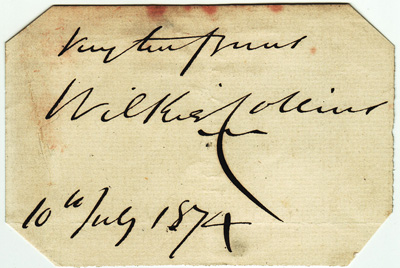 Very truly yours
Wilkie Collins
10th July 1874